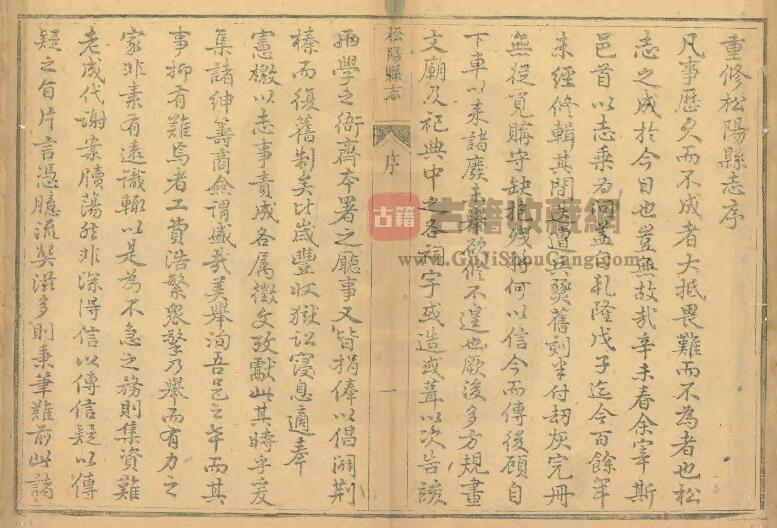 重修松陽縣志序
凡事歷久而不成者大抵畏難而不為者也松
志之成於今日也豈無故哉辛未春余宰斯
邑首以志乘為問蓋自乾隆戊子迄今百餘年
未經修輯其間迭遭兵燹舊刻半付刼灰完冊
無從覓購守缺抱殘將何以信今而傳後顧自
下車以來諸廢未舉硏修不遑也厥後多方規畫
文廟及祀典中之各祠宇或造或葺以次告竣
松陽縣志
序
一
兩學之衙齋本署之廳事又皆捐俸以倡闢荆
榛而復舊制矣比歲豐収獄訟寢息適奉
憲檄以志事責成各属徵文攷獻此其時乎爰
集諸紳籌商僉謂盛哉美舉洵吾邑之幸而其
事抑有難焉者工費浩繁裒擎乃舉而有力之
家非素有遠識輒以是為不急之務則集資難
老成代謝案牘蕩然非深得信以傳信疑以傳
疑之旨片言憑臆流弊滋多則秉筆難前此議
古籍
古籍收藏網
www.GuJiShouCang.com